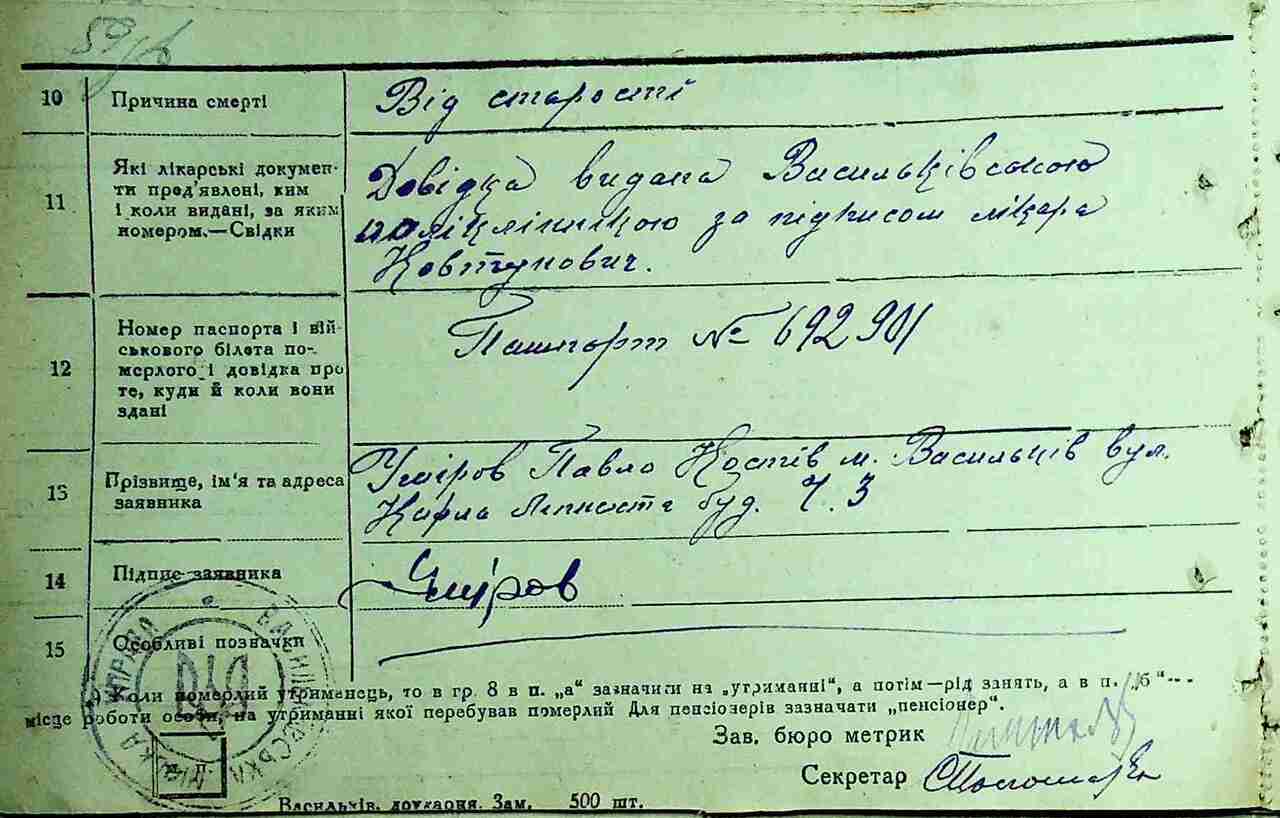 59/6
10 Причина смерті Від старості
11 Які лікарські докумен-
ти пред'явлені, ким
і коли видані, за яким
номером.—Свідки
Довідка видана Васильківською
поліклінікою за підписом лікара
Ковтунович.
12 Номер паспорта і вій-
ськового білета по-
мерлого і довідка про
те, куди й коли вони
здані
Пашпорт № 692901
13 Прізвище, ім'я та адреса
заявника
Павло Костів м. Васильків вул.
Карла Лібкнехта буд. Ч. 3
14 Підпис заявника
15 Особливі позначки
Коли померлий утриманець, то в гр. 8 в п. „а“ зазначити на „утриманні“, а потім—рід занять, а в п. „б“---
місце роботи особи, на утриманні якої перебував померлий Для пенсіонерів зазначати „пенсіонер“.
Зав. бюро метрик
Секретар
Васильків, друкарня. Зам. 500 шт.